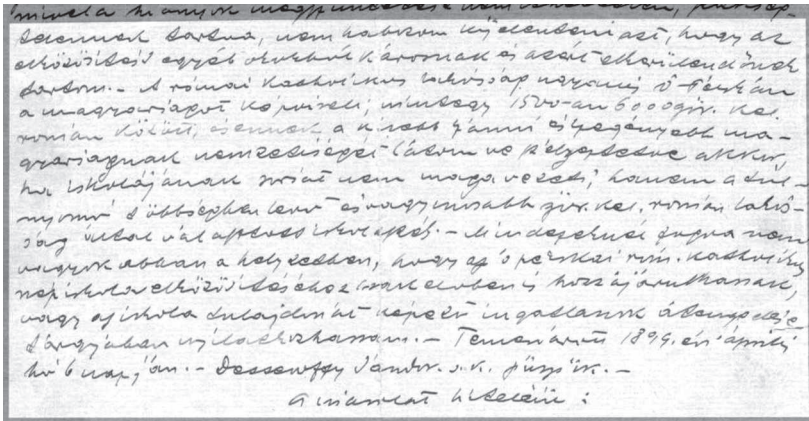 mivel a hiányok megszüntetése nem
telennek tartva, nem habozom kijelenteni azt, hogy az
elközösitést egyéb okokból károsnak és azért elkerülendőnek
tartom. – A római katholikus lakosság ugyanis Ó-Péskán
a magyarságot képviseli, mintegy 1500-an 6000 gör. kel.
román között, s ennek a kisebb számú és szegényebb ma-
gyarságnak nemzetiségét látom veszélyeztetve akkor,
ha iskolájának sorsát nem maga vezeti, hanem a túl-
nyomó többségben levő és vagyonosabb gör. kel. román lakos-
ság által választott iskolaszék. – Mindezeknél fogva nem
vagyok abban a helyzetben, hogy az ó-péskai róm. katholikus
népiskola elközösitéséhez csak elvben is hozzájárulhassak,
vagy az iskola tulajdonát képező ingatlanok átengedése
tárgyában nyilatkozhassam. – Temesvárott 1899. évi április
hó 6 napján. – Dessewffy Sándor s.k. püspök. –
A másolat hiteléül: